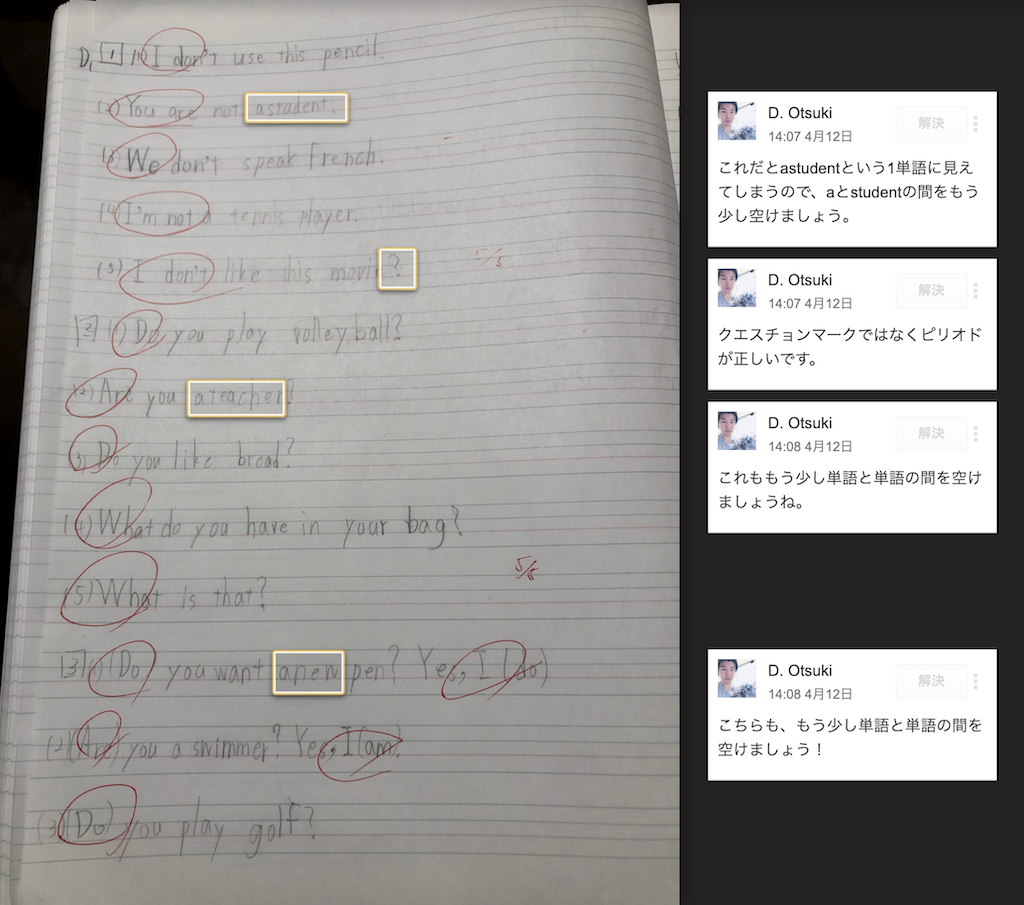 D, 1 (1) I don't use this pencil.
(2) You are not astudent.
(3) We don't speak French.
(4) I'm not a tennis player.
(5) I don't like this movie?
5/5
2 (1) Do you play volleyball?
(2) Are you ateacher?
(3) Do you like bread?
(4) What do you have in your bag?
5/5
(5) What is that?
3 (1) (Do) you want anew pen? Yes, I (do)
(2) (Are) you a swimmer? Yes, I (am).
(3) (Do) you play golf?
D. Otsuki
解決
14:07 4月12日
これだとastudentという1単語に見え
てしまうので、aとstudentの間をもう
少し空けましょう。
D. Otsuki
解決
14:07 4月12日
クエスチョンマークではなくピリオド
が正しいです。
D. Otsuki
解決
14:08 4月12日
これももう少し単語と単語の間を空け
ましょうね。
D. Otsuki
解決
14:08 4月12日
こちらも、もう少し単語と単語の間を
空けましょう！